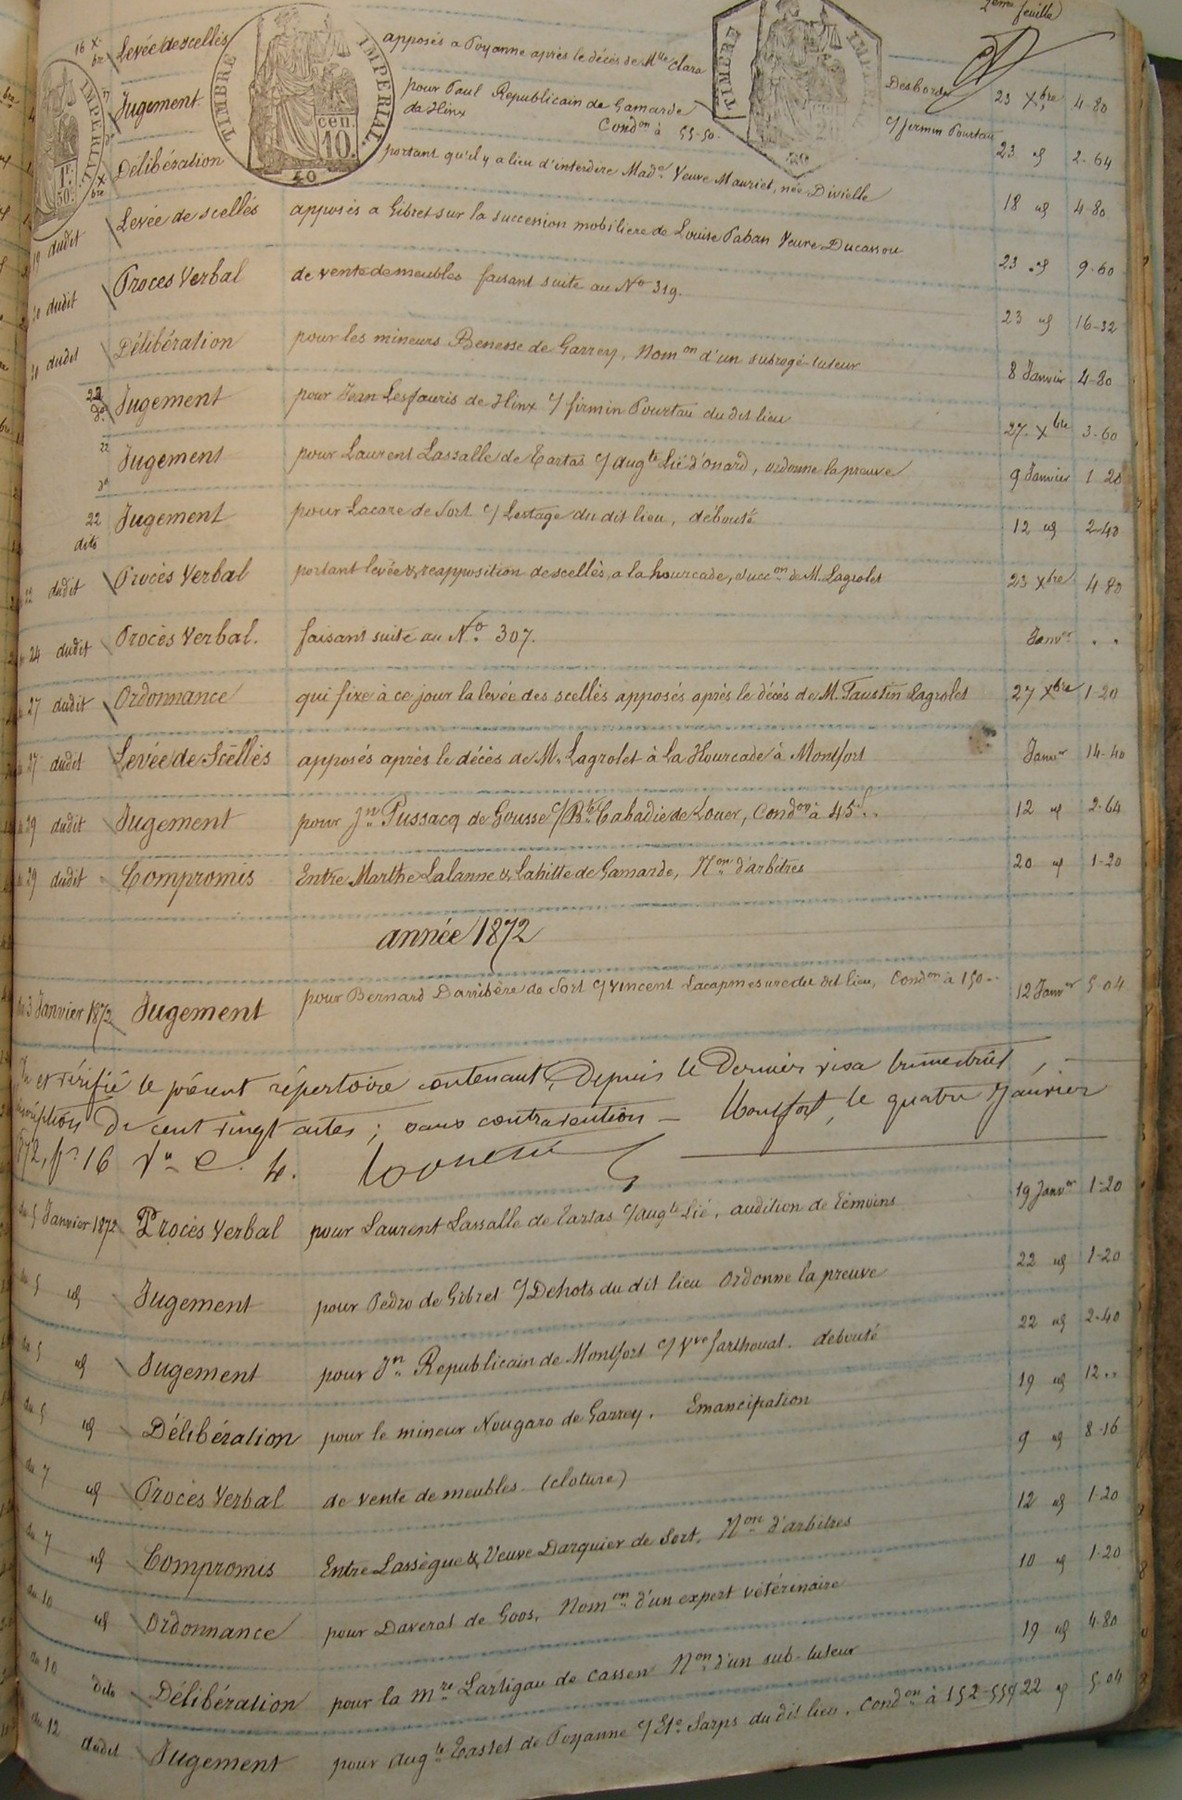 2eme feuille
16 Xbre Levée de scellés apposés a Poyanne après le décès de Mlle Clara Desbords 23 Xbre 4-80
Jugement pour Paul Republicain de Gamarde c/ firmin Pourtau
de Hinx Condon à 55-50. 23 d 2-64
Délibération portant qu'il y a lieu d'interdire Made Veuve Mauriet, née Divielle 18 d 4-80
19 dudit Levée de scellés apposés a Gibret sur la succession mobiliere de Louise Paban Veuve Ducassou 23 d 9-60
20 dudit Procès Verbal de vente de meubles faisant suite au No 319. 23 d 16-32
20 dudit Délibération pour les mineurs Benesse de Garrey, Nomon d'un subrogé-tuteur 8 Janvier 4-80
22 do Jugement pour Jean Lesfauris de Hinx c/ firmin Pourtau du dit lieu 27 Xbre 3-60
22 do Jugement pour Laurent Lassalle de Tartas c/ Augte Lié d'onard, ordonne la preuve 9 Janvier 1-20
22 dito Jugement pour Lacare de Sort c/ Lestage du dit lieu, débouté 12 d 2-40
22 dudit Procès Verbal portant levée & reapposition de scellés, a la hourcade, succon de M. Lagrolet 23 Xbre 4-80
24 dudit Procès Verbal. faisant suite au No 307. Janver . .
27 dudit Ordonnance qui fixe à ce jour la levée des scellés apposés après le décès de M. Faustin Lagrolet 27 Xbre 1-20
27 dudit Levée de Scellés apposés après le décès de M. Lagrolet à La Hourcade à Montfort Janver 14-40
29 dudit Jugement pour Jn Pussacq de Gousse c/ Bte Cabadie de Louer, Condon à 45f.. 12 d 2-64
29 dudit Compromis Entre Marthe Lalanne & Lahitte de Gamarde, Non d'arbitres 20 d 1-20
année 1872
du 3 Janvier 1872 Jugement pour Bernard Darribère de Sort c/ Vincent Lacapmesure du dit lieu, Condon à 150-- 12 Janver 5-04
Vu et vérifié le présent répertoire contenant, depuis le dernier visa trimestriel,
inscription de cent vingt actes; sans contravention - Montfort, le quatre Janvier
1872, fo 16 Vo C. 4.
du 5 Janvier 1872 Procès Verbal pour Laurent Lassalle de Tartas c/ Augte Lié, audition de témoins 19 Janver 1-20
du 5 d Jugement pour Pedro de Gibret c/ Dehots du dit lieu Ordonne la preuve 22 d 1-20
du 5 d Jugement pour Jn Republicain de Montfort c/ Vve Farthouat. débouté 22 d 2-40
du 5 d Délibération pour le mineur Nougaro de Garrey. Emancipation 19 d 12..
du 7 d Procès Verbal de vente de meubles (cloture) 9 d 8-16
du 7 d Compromis Entre Lassègue & Veuve Darquier de Sort, Non d'arbitres 12 d 1-20
du 10 d Ordonnance pour Daverat de Goos, Nomon d'un expert vétérinaire 10 d 1-20
du 10 dito Délibération pour la mre Lartigau de Cassen Non d'un sub-tuteur 19 d 4-80
du 12 dudit Jugement pour Augte Tastet de Poyanne c/ Ete Sarps du dit lieu, Condon à 152-55 22 d 5-04
TIMBRE IMPERIAL
1F 50c
TIMBRE IMPERIAL
cen 10.
40
TIMBRE IMPERIAL